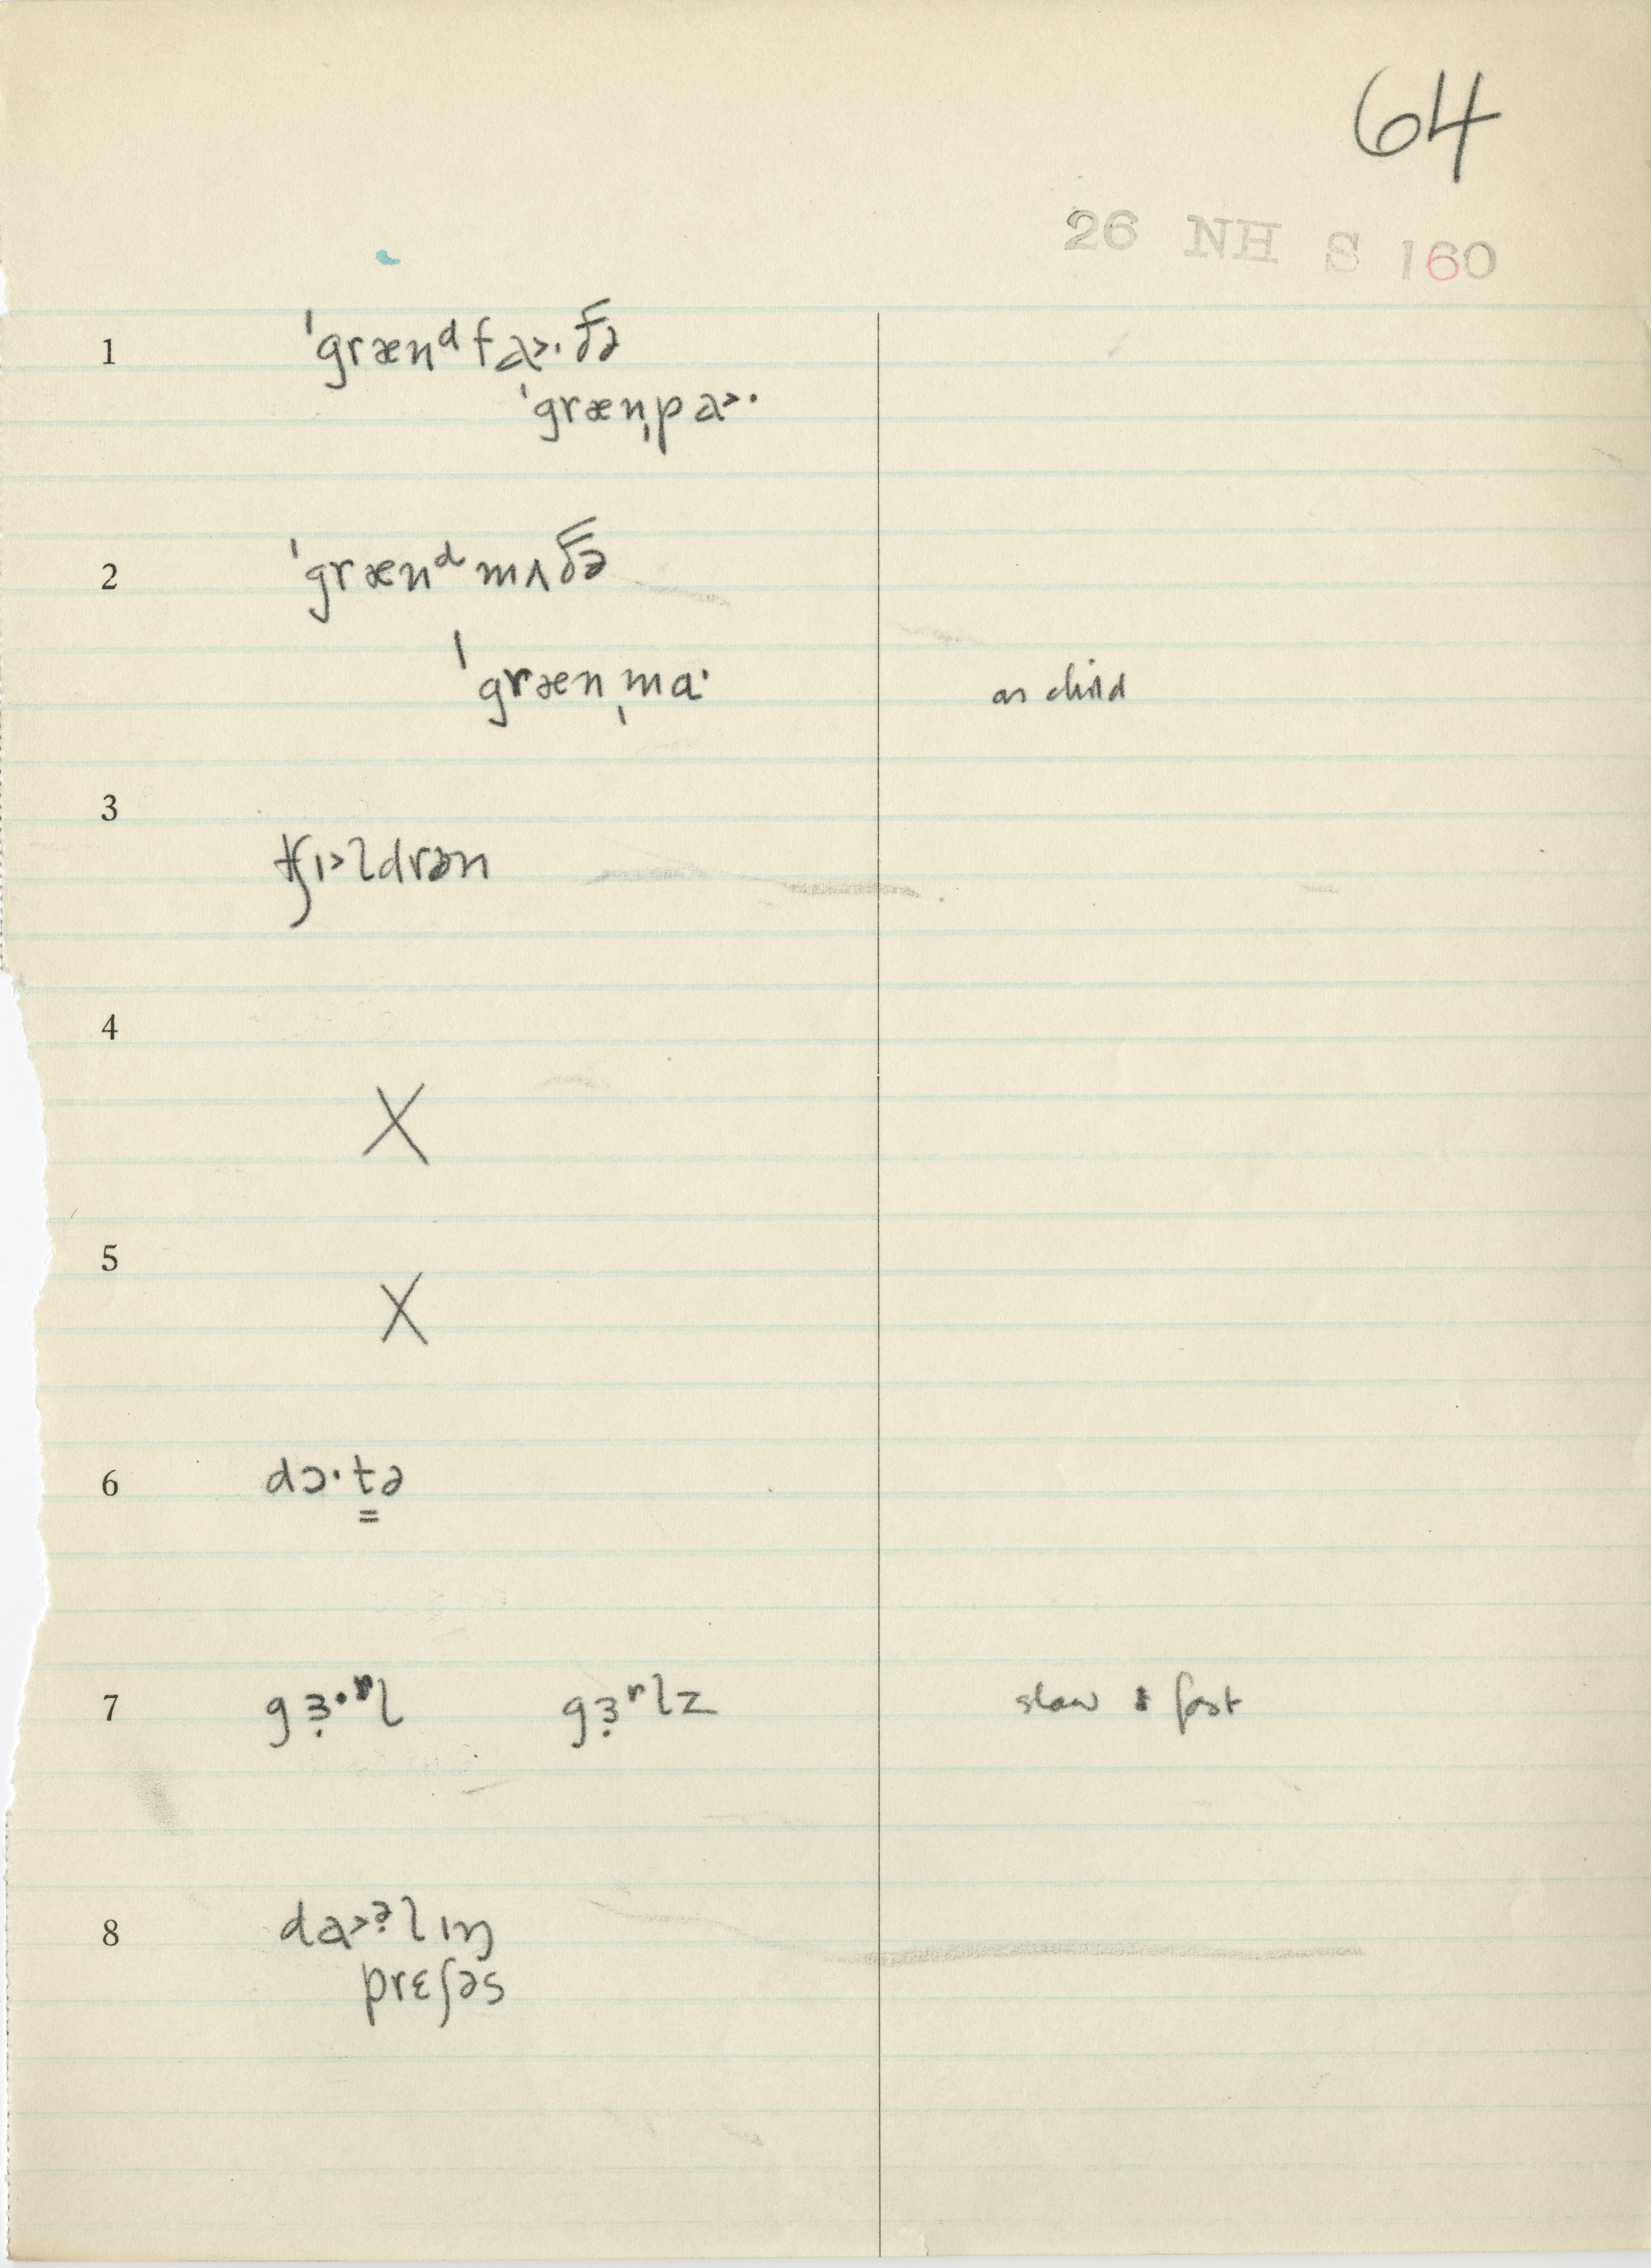 64
26 NH S 160
1 ˈgrænᵈfa>·ðə
ˈgrænˌpa>·
2 ˈgrænᵈmʌðə
ˈgrænˌmɑ· as child
3 tʃɪ>ldrən
4 X
5 X
6 dɔ·t͇ə
7 gɜ̣·ʳl gɜ̣ʳlz slow & fast
8 da>ə̣lɪŋ
prɛʃəs